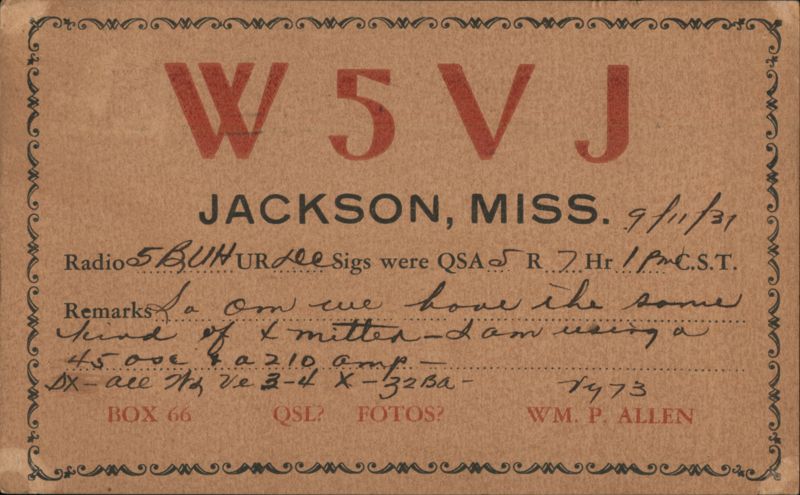 W5VJ
JACKSON, MISS. 9/11/31
Radio 5BUH UR DC Sigs were QSA 5 R 7 Hr 1 Pm C.S.T.
Remarks La om we have the same
kind of xmitter - I am using a
45 osc & a 210 amp -
DX - all Ve 3-4 X - 32Ba - Vy 73
BOX 66 QSL? FOTOS? WM. P. ALLEN